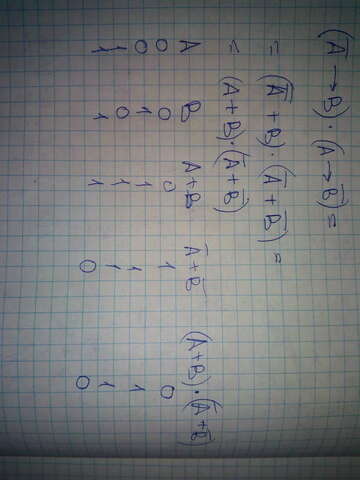 (A̅ → B) · (A → B̅) =
= (A̿ + B) · (A̅ + B̅) =
= (A + B) · (A̅ + B̅)
A B A+B A̅+B̅ (A+B)·(A̅+B̅)
0 0 0 1 0
0 1 1 1 1
1 0 1 1 1
1 1 1 0 0